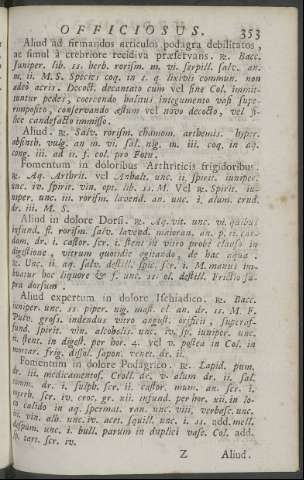 OFFICIOSUS. 353
Aliud ad firmandos articulos podagra debilitatos,
ac simul a crebriore recidiva præservans. ℞. Bacc.
Juniper. lib. ss. herb. rorism. m. vi. serpill. salv. an.
m. ii. M. S. Species coq. in s. q. lixivii commun. non
adeò acris. Decoct. decantato cum vel sine Col. immit-
tuntur pedes, coercendo halitus integumento vasi supe-
rimposito, conservando æstum vel novo decocto, vel si-
lice candefacto immisso.
Aliud. ℞. Salv. rorism. chamom. arthemis. hyper.
absinth. vulg. an m. vi. sal. nig. m. iii. coq. in aq.
cong. iii. ad ii. f. col. pro Fotu.
Fomentum in doloribus Arthriticis frigidoribus.
℞. Aq. Arthrit. vel Anhalt. unc. ii. spirit. juniper.
unc. iv. spirit. vin. opt. lib. ss. M. Vel ℞. Spirit. ju-
niper. unc. iii. rorism. lavend. an. unc. i. alum. crud.
dr. iii. M. S.
Aliud in dolore Dorsi. ℞. Aq. vit. unc. vi. quibus
infund. fl. rorism. salv. lavend. majoran. an. p. ii. car-
dam. dr. i. castor. scr. i. stent in vitro probè clauso in
digestione, vitrum quotidie agitando, de hac aqua
℞. Unc. ii. aq. salv. destill. spic. scr. i. M. manus im-
buatur hoc liquore & f. unc. ss. ol. destill. Frictio su-
pra dorsum.
Aliud expertum in dolore Ischiadico. ℞. Bacc.
juniper. unc. ss. piper. nig. mast. el. an. dr. ss. M. F.
Pulv. gross. indendus vitro angust. orificii, superaf-
fund. spirit. vin. alcoholis. unc. iv. sp. juniper. unc.
ii. stent. in digest. per hor. 4. vel v. postea in Col. in
mortar. frig. dissol. sapon. venet. dr. ii.
Fomentum in dolore Podagrico. ℞. Lapid. pum.
dr. iii. medicamentos. Croll. dr. v. alum. dr. ii. sal.
comm. dr. i. sulph. scr. ii. castor. mum. an. scr. i.
myrrh. scr. iv. croc. gr. xii. infund. per hor. xii. in lo-
co calido in aq. spermat. ran. unc. viii, verbasc. unc.
iv. vin. alb. unc. iv. acet. squill. unc. i. ss. add. mell.
despum. unc. i. bull. parum in duplici vase. Col. add.
lap. tart. scr. iv.
Z Aliud.